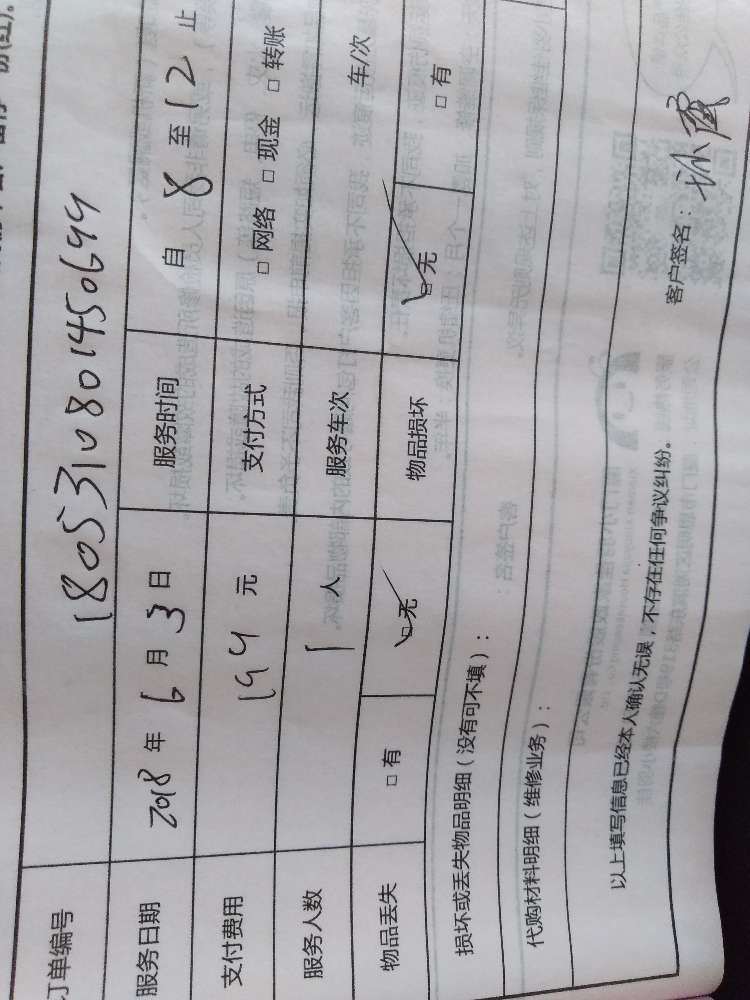 订单编号 180531080145069​9
服务日期 2018 年 6 月 3 日 服务时间 自 8 至 12 止
支付费用 199 元 支付方式 □ 网络 □ 现金 □ 转账
服务人数 1 人 服务车次 车/次
物品丢失 □ 有 □ 无 物品损坏 □ 无 □ 有
损坏或丢失物品明细（没有可不填）：
代购材料明细（维修业务）：
以上填写信息已经本人确认无误，不存在任何争议纠纷。
客户签名：